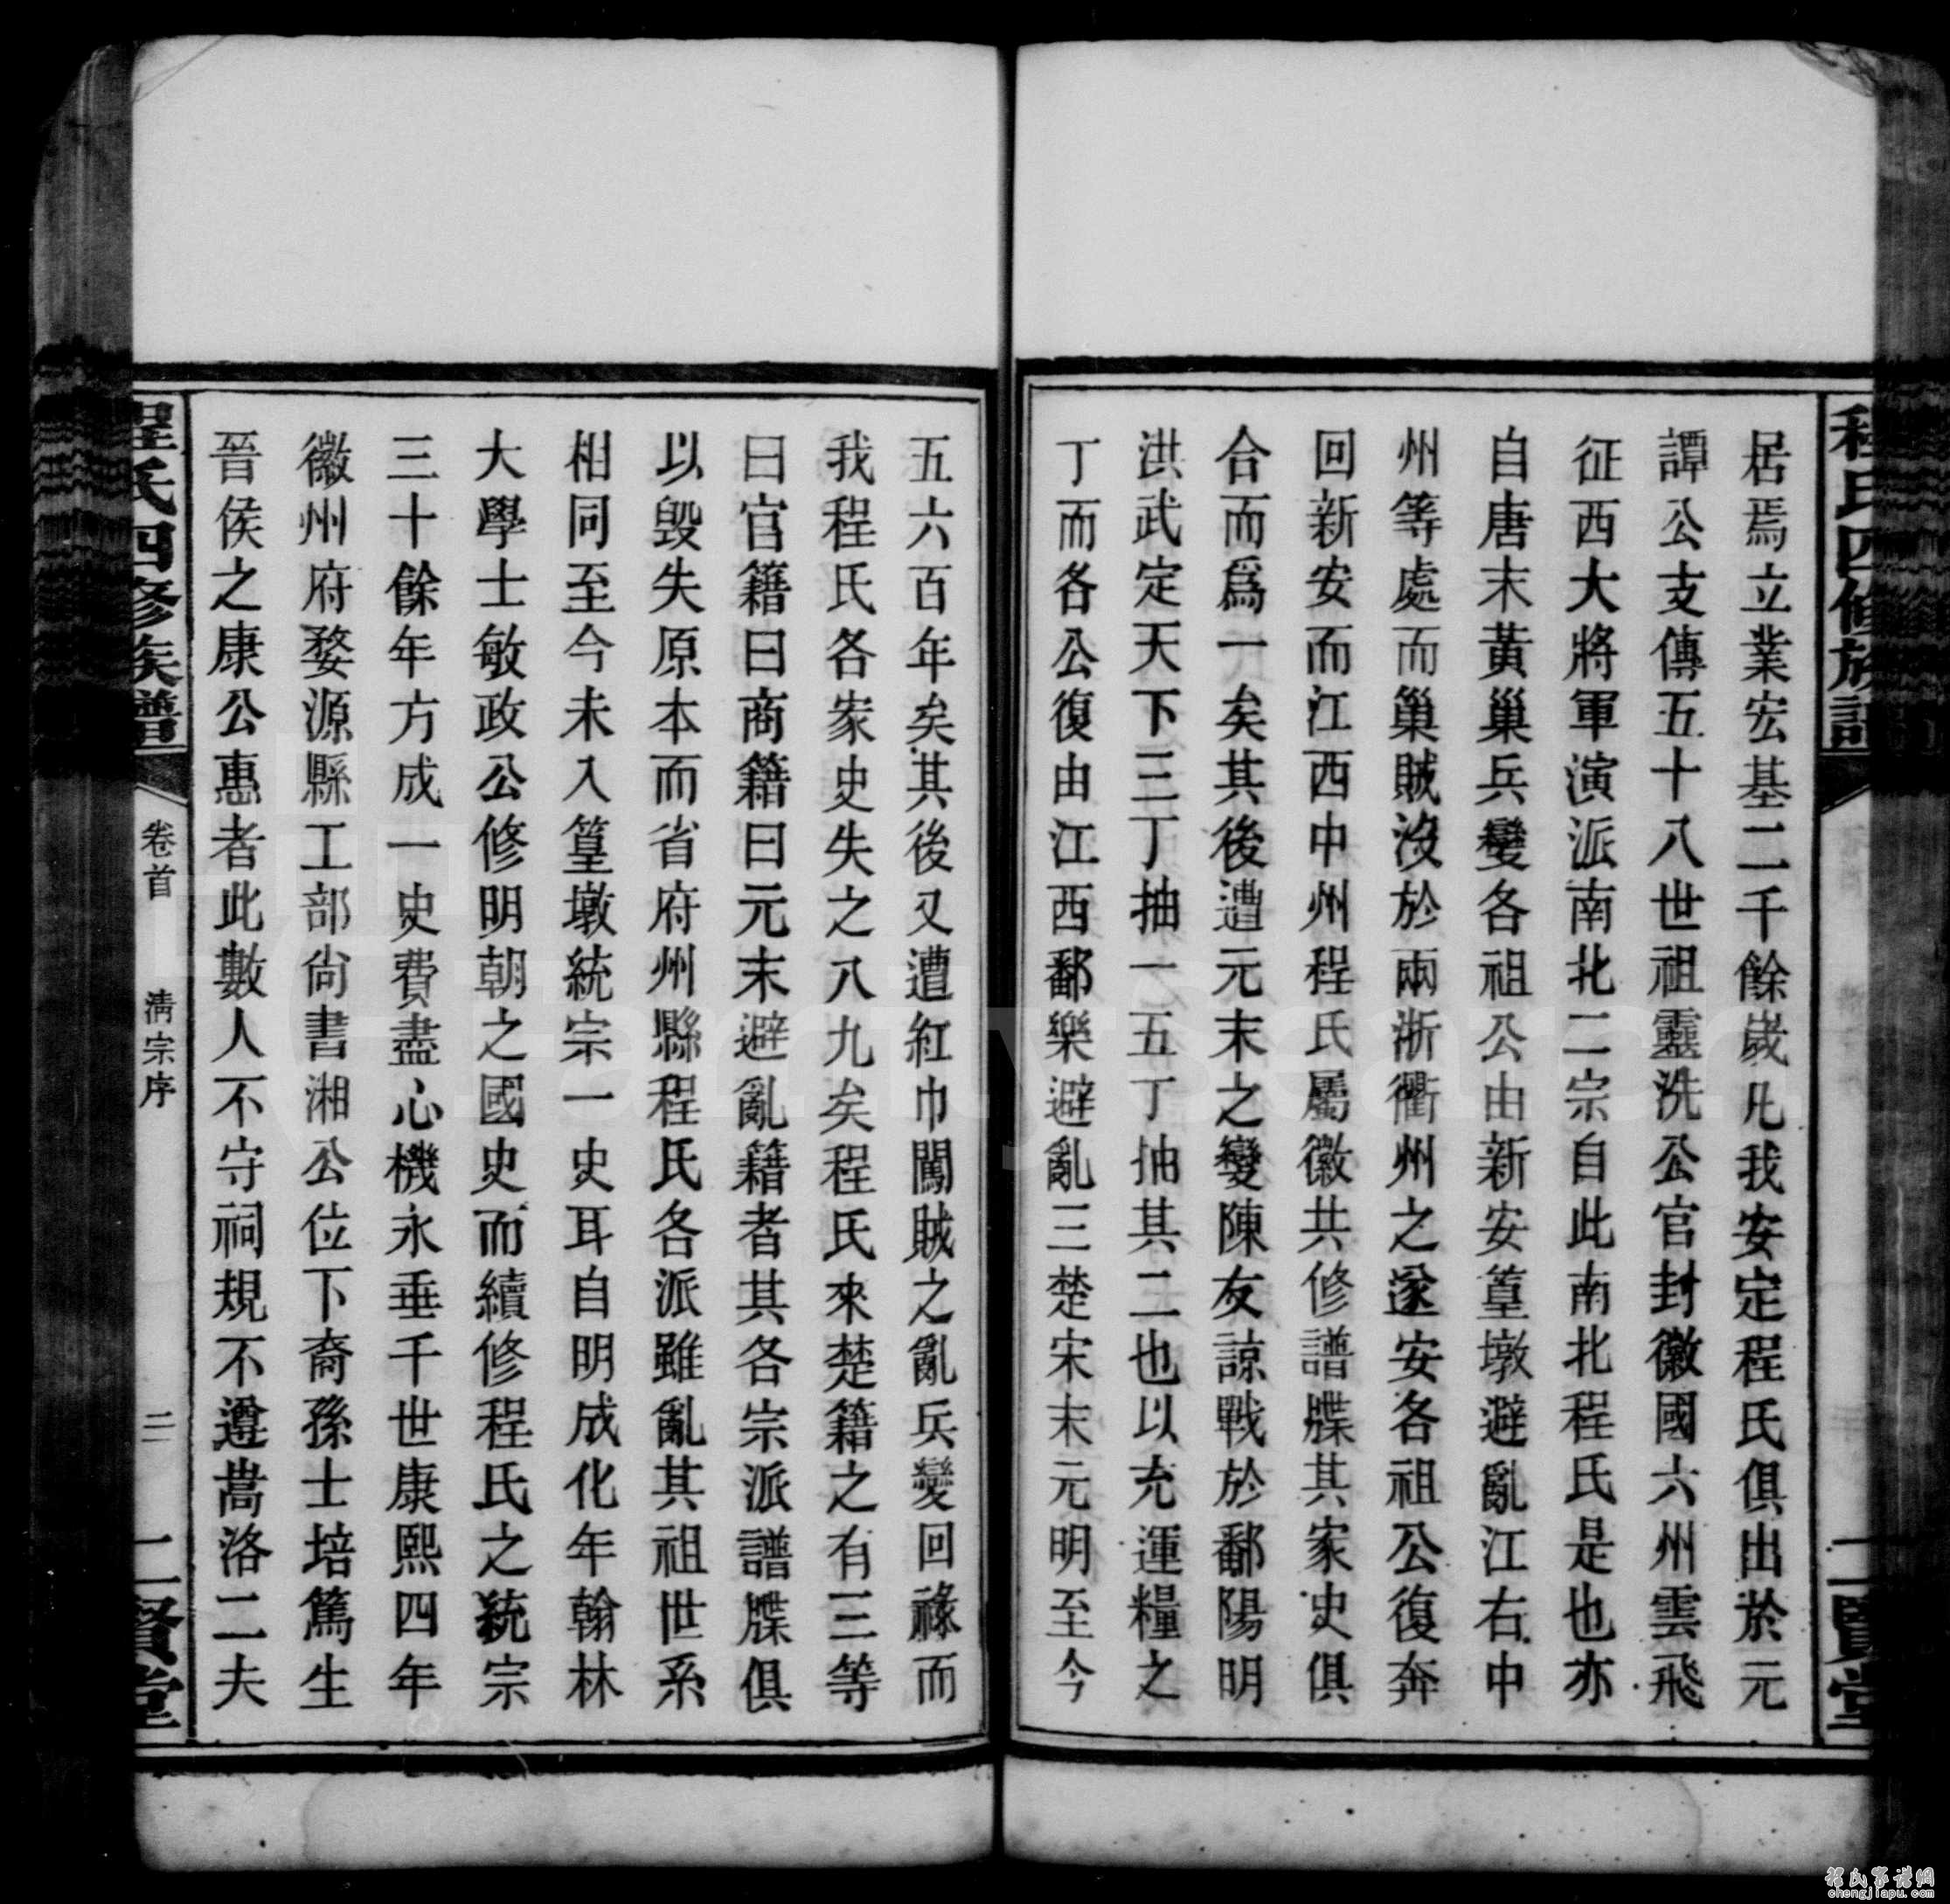 程氏四修族譜
二賢堂
居焉立業宏基二千餘歲凡我安定程氏俱出於元
譚公支傳五十八世祖靈洗公官封徽國六州雲飛
征西大將軍演派南北二宗自此南北程氏是也亦
自唐末黃巢兵變各祖公由新安篁墩避亂江右中
州等處而巢賊沒於兩浙衢州之遂安各祖公復奔
回新安而江西中州程氏屬徽共修譜牒其家史俱
合而爲一矣其後遭元末之變陳友諒戰於鄱陽明
洪武定天下三丁抽一五丁抽其二也以充運糧之
丁而各公復由江西鄱樂避亂三楚宋末元明至今
五六百年矣其後又遭紅巾闖賊之亂兵變回祿而
我程氏各家史失之八九矣程氏來楚籍之有三等
曰官籍曰商籍曰元末避亂籍者其各宗派譜牒俱
以毀失原本而省府州縣程氏各派雖亂其祖世系
相同至今未入篁墩統宗一史耳自明成化年翰林
大學士敏政公修明朝之國史而續修程氏之統宗
三十餘年方成一史費盡心機永垂千世康熙四年
徽州府婺源縣工部尙書湘公位下裔孫士培篤生
晉侯之康公惠者此數人不守祠規不遵嵩洛二夫
程氏四修族譜
卷首 淸宗序 二 二賢堂
FamilySearch
程氏家譜網
chengjiapu.com